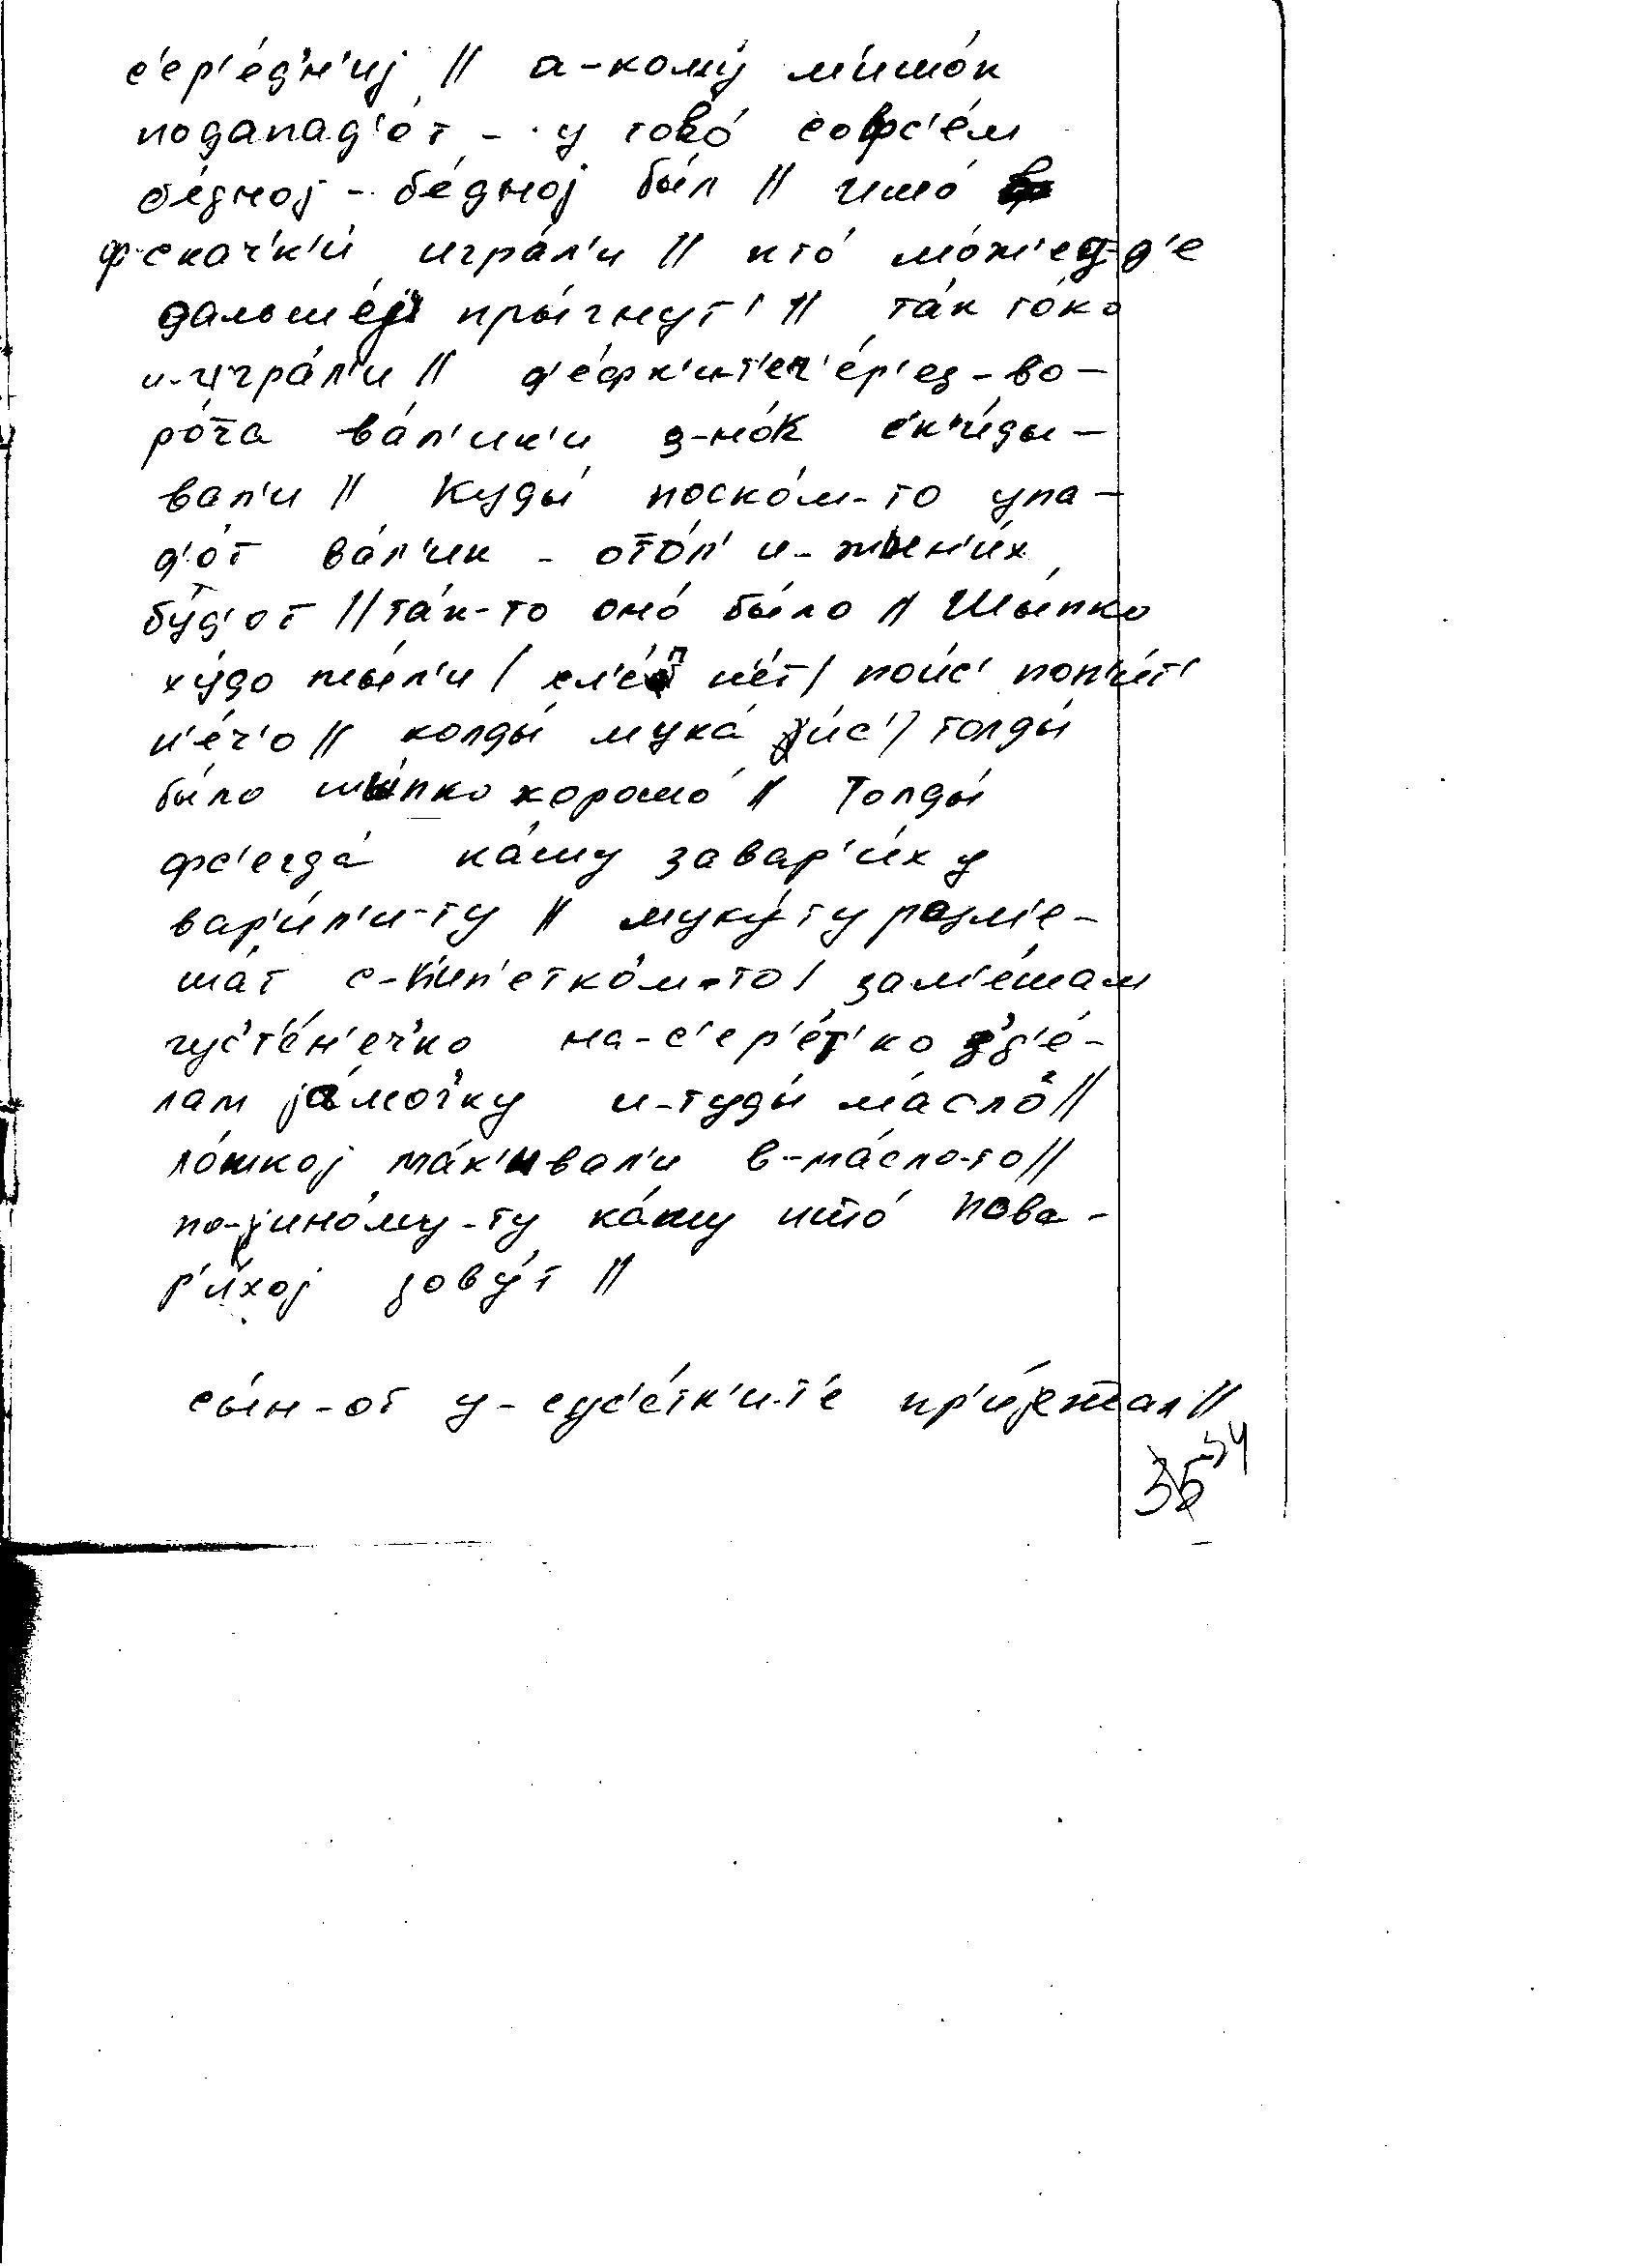 с'ер'е́д'н'иј // а-кому́ м'ишо́к
подапад'о́т - у тово́ софс'е́м
бе́дној - бе́дној бы́л // ишо́
ф-скач'к'и́ игра́л'и // кто́ мо́ж'ец-д'е
дальше́ј пры́гнут' // та́к то́ко
и-игра́л'и // д'е́фк'и-т'е ч'е́р'ез-во-
ро́та ва́л'ик'и з-но́к ск'и́ды-
вал'и // куды́ носко́м-то упа-
д'о́т ва́л'ик - отто́л' и-жын'и́х
бу́д'от // та́к-то оно́ бы́ло // Шы́пко
ху́до жы́л'и / хл'е́п н'е́т / пои́с' поп'и́т'
н'е́ч'о // колды́ мука́ јис' / толды́
бы́ло шы́пко хорошо́ // Толды́
фс'егда́ ка́шу завар'и́ху
вар'и́л'и-ту // муку́ ту разм'е-
ша́т с-кип'етко́м-то / зам'е́шам
гус'т'е́н'еч'ко на-с'ер'е́т'ко з'д'е́-
лам ја́моч'ку и-туды́ ма́сло //
ло́шкој ма́к'ивал'и в-ма́сло-то //
по-јино́му-ту ка́шу ишшо́ пова-
р'и́хој зову́т //
сы́н-от у-сус'е́тк'и-т'е пр'ије́жжал //
35 34